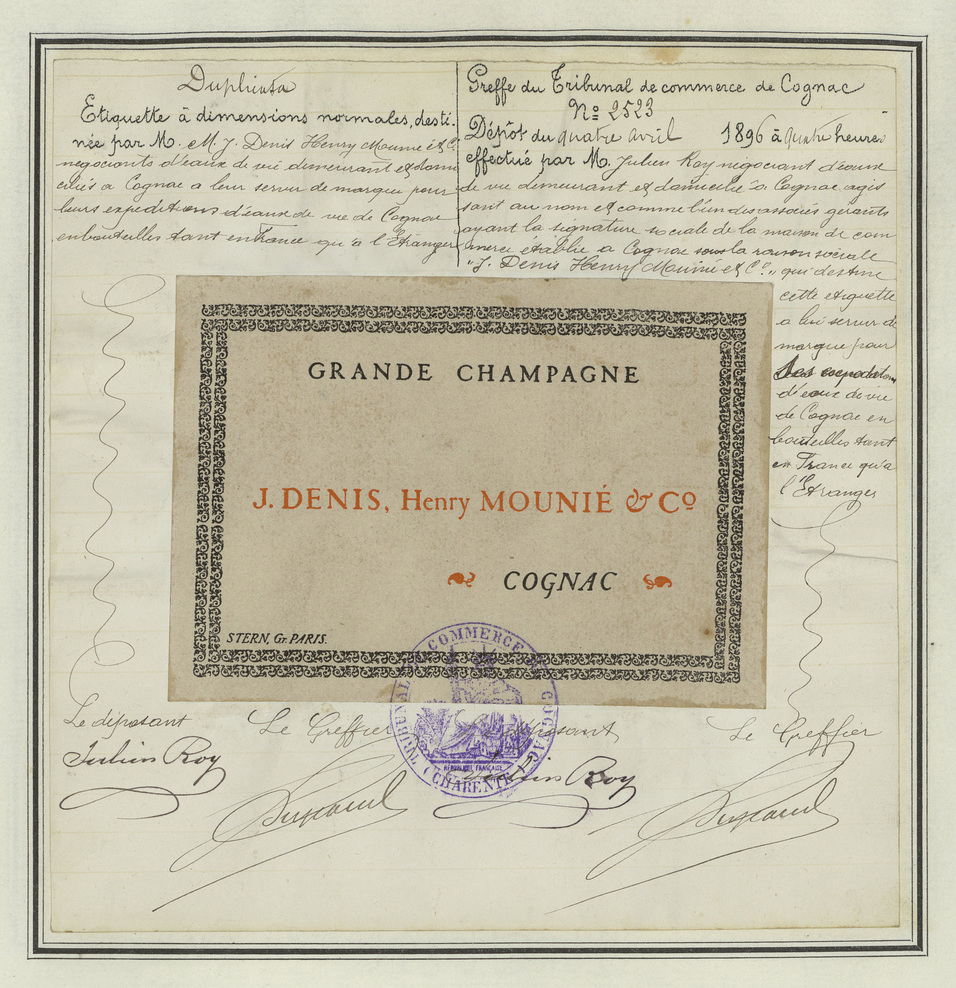 Duplicata
Etiquette à dimensions normales, desti-
née par Mo. M. J. Denis Henry Mounié & Cº
négociants d'eaux de vie demeurant et domi
ciliés à Cognac a leur servir de marque pour
leurs expeditions d'eaux de vie de Cognac
en bouteilles tant en France qu'à l'Etranger
Greffe du Tribunal de commerce de Cognac
Nº 2523
Dépôt du quatre avril 1896 à quatre heures
effectué par Mo. Julien Roy négociant d'eaux
de vie demeurant et domicilié à Cognac agis
sant au nom et comme l'un des associés gérants
ayant la signature sociale de la maison de com
merce établie a Cognac sous la raison sociale
"J. Denis Henry Mounié & Cº" qui destine
cette etiquette
a lui servir de
marque pour
expeditions
d'eaux de vie
de Cognac en
bouteilles tant
en France qu'a
l'Etranger
GRANDE CHAMPAGNE
J. DENIS, Henry MOUNIÉ & Cº
COGNAC
STERN, Gr PARIS.
TRIBUNAL DE COMMERCE DE COGNAC
RÉPUBLIQUE FRANÇAISE
(CHARENTE)
Le déposant
Le Greffier
Le déposant
Le Greffier
Julien Roy
Julien Roy